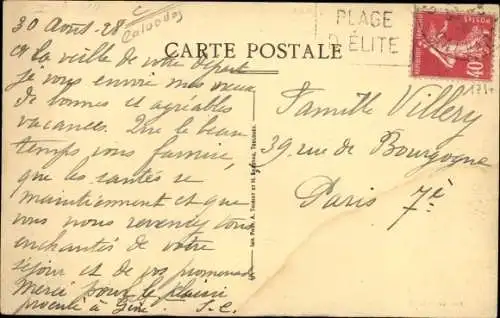 30 Août - 28
Calvados
PLAGE
D'ÉLITE
CARTE POSTALE
40c
A la veille de votre départ
je vous envoie mes vœux
de bonnes et agréables
vacances. Que le beau
temps vous favorise,
que les santés se
maintiennent et que
vous nous reveniez tous
enchantés de votre
séjour et de vos promenades
Merci pour le plaisir
procuré à
S.C.
Famille Villery
39 rue de Bourgogne
Paris 7è